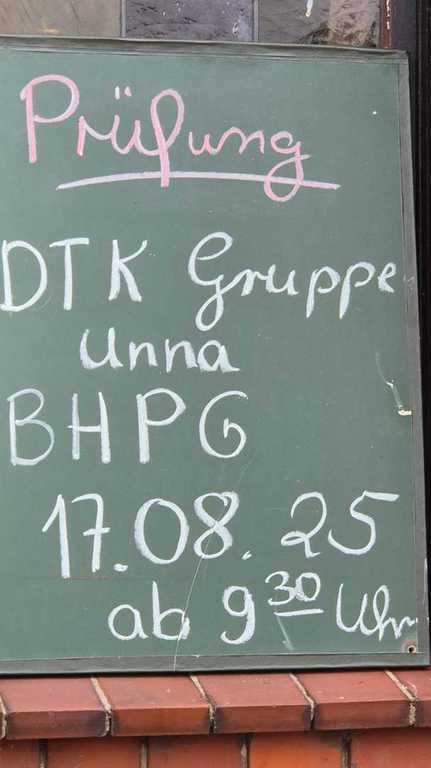 Prüfung
DTK Gruppe
Unna
BHPG
17.08.25
ab 9³⁰ Uhr